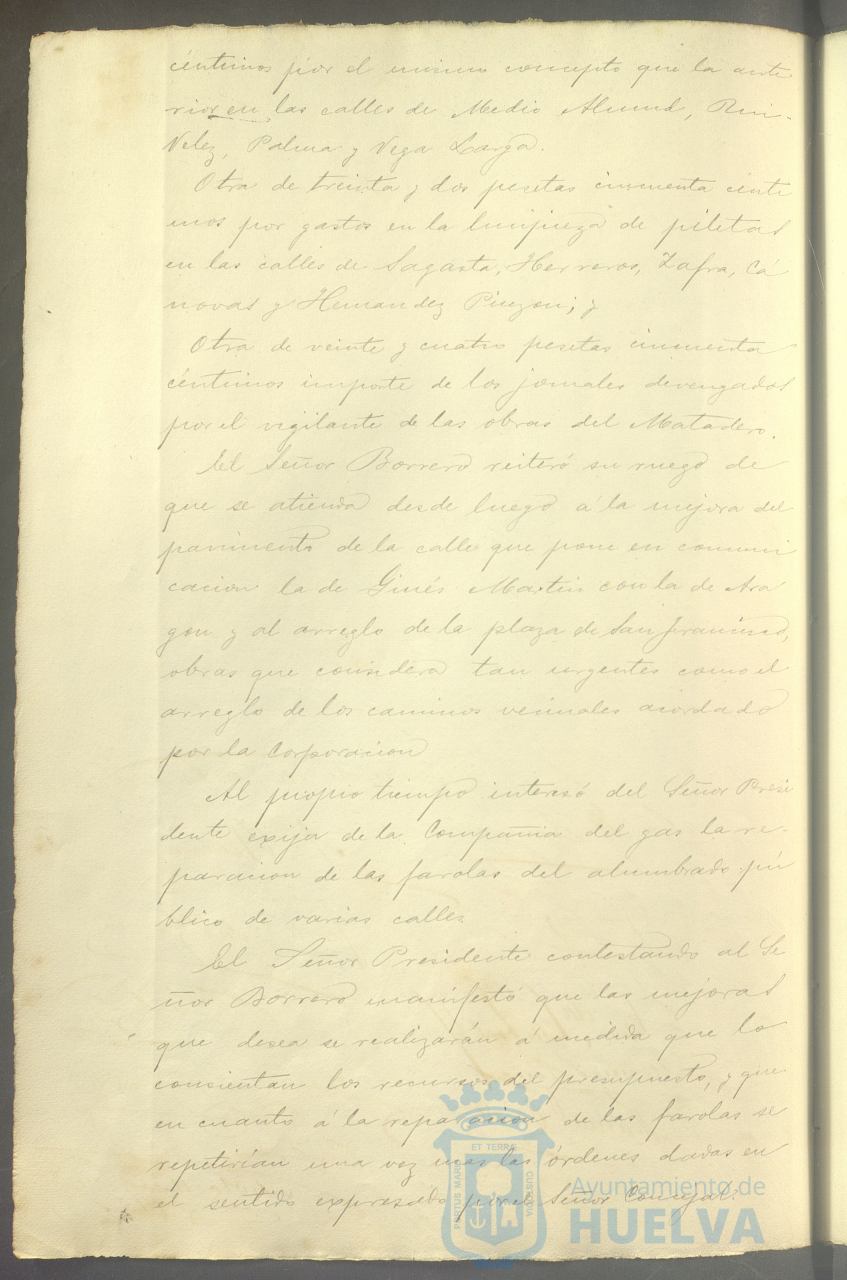 céntimos por el mismo concepto que la ante
rior en las calles de Medio Almud, Rui-
Velez, Palma y Vega Larga.
Otra de treinta y dos pesetas cincuenta cénti
mos por gastos en la limpieza de piletas
en las calles de Sagasta, Herreros, Zafra, Cá
novas y Hernandez Pinzon; y
Otra de veinte y cuatro pesetas cincuenta
céntimos importe de los jornales devengados
por el vigilante de las obras del Matadero.
El Señor Borrero reiteró su ruego de
que se atienda desde luego á la mejora del
pavimento de la calle que pone en comuni
cacion la de Ginés Martin con la de Ara
gon y al arreglo de la plaza de San Francisco,
obras que considera tan urgentes como el
arreglo de los caminos vecinales acordado
por la Corporacion
Al propio tiempo interesó del Señor Presi
dente exija de la Compañia del gas la re-
paracion de las farolas del alumbrado pú
blico de varias calles
El Señor Presidente contestando al Se
ñor Borrero manifestó que las mejoras
que desea se realizarán á medida que lo
consientan los recursos del presupuesto, y que
en cuanto á la reparacion de las farolas se
repetirían una vez mas las órdenes dadas en
el sentido expresado por el Señor Concejal.
PORTUS MARIS ET TERRE CUSTODIA
Ayuntamiento de
HUELVA